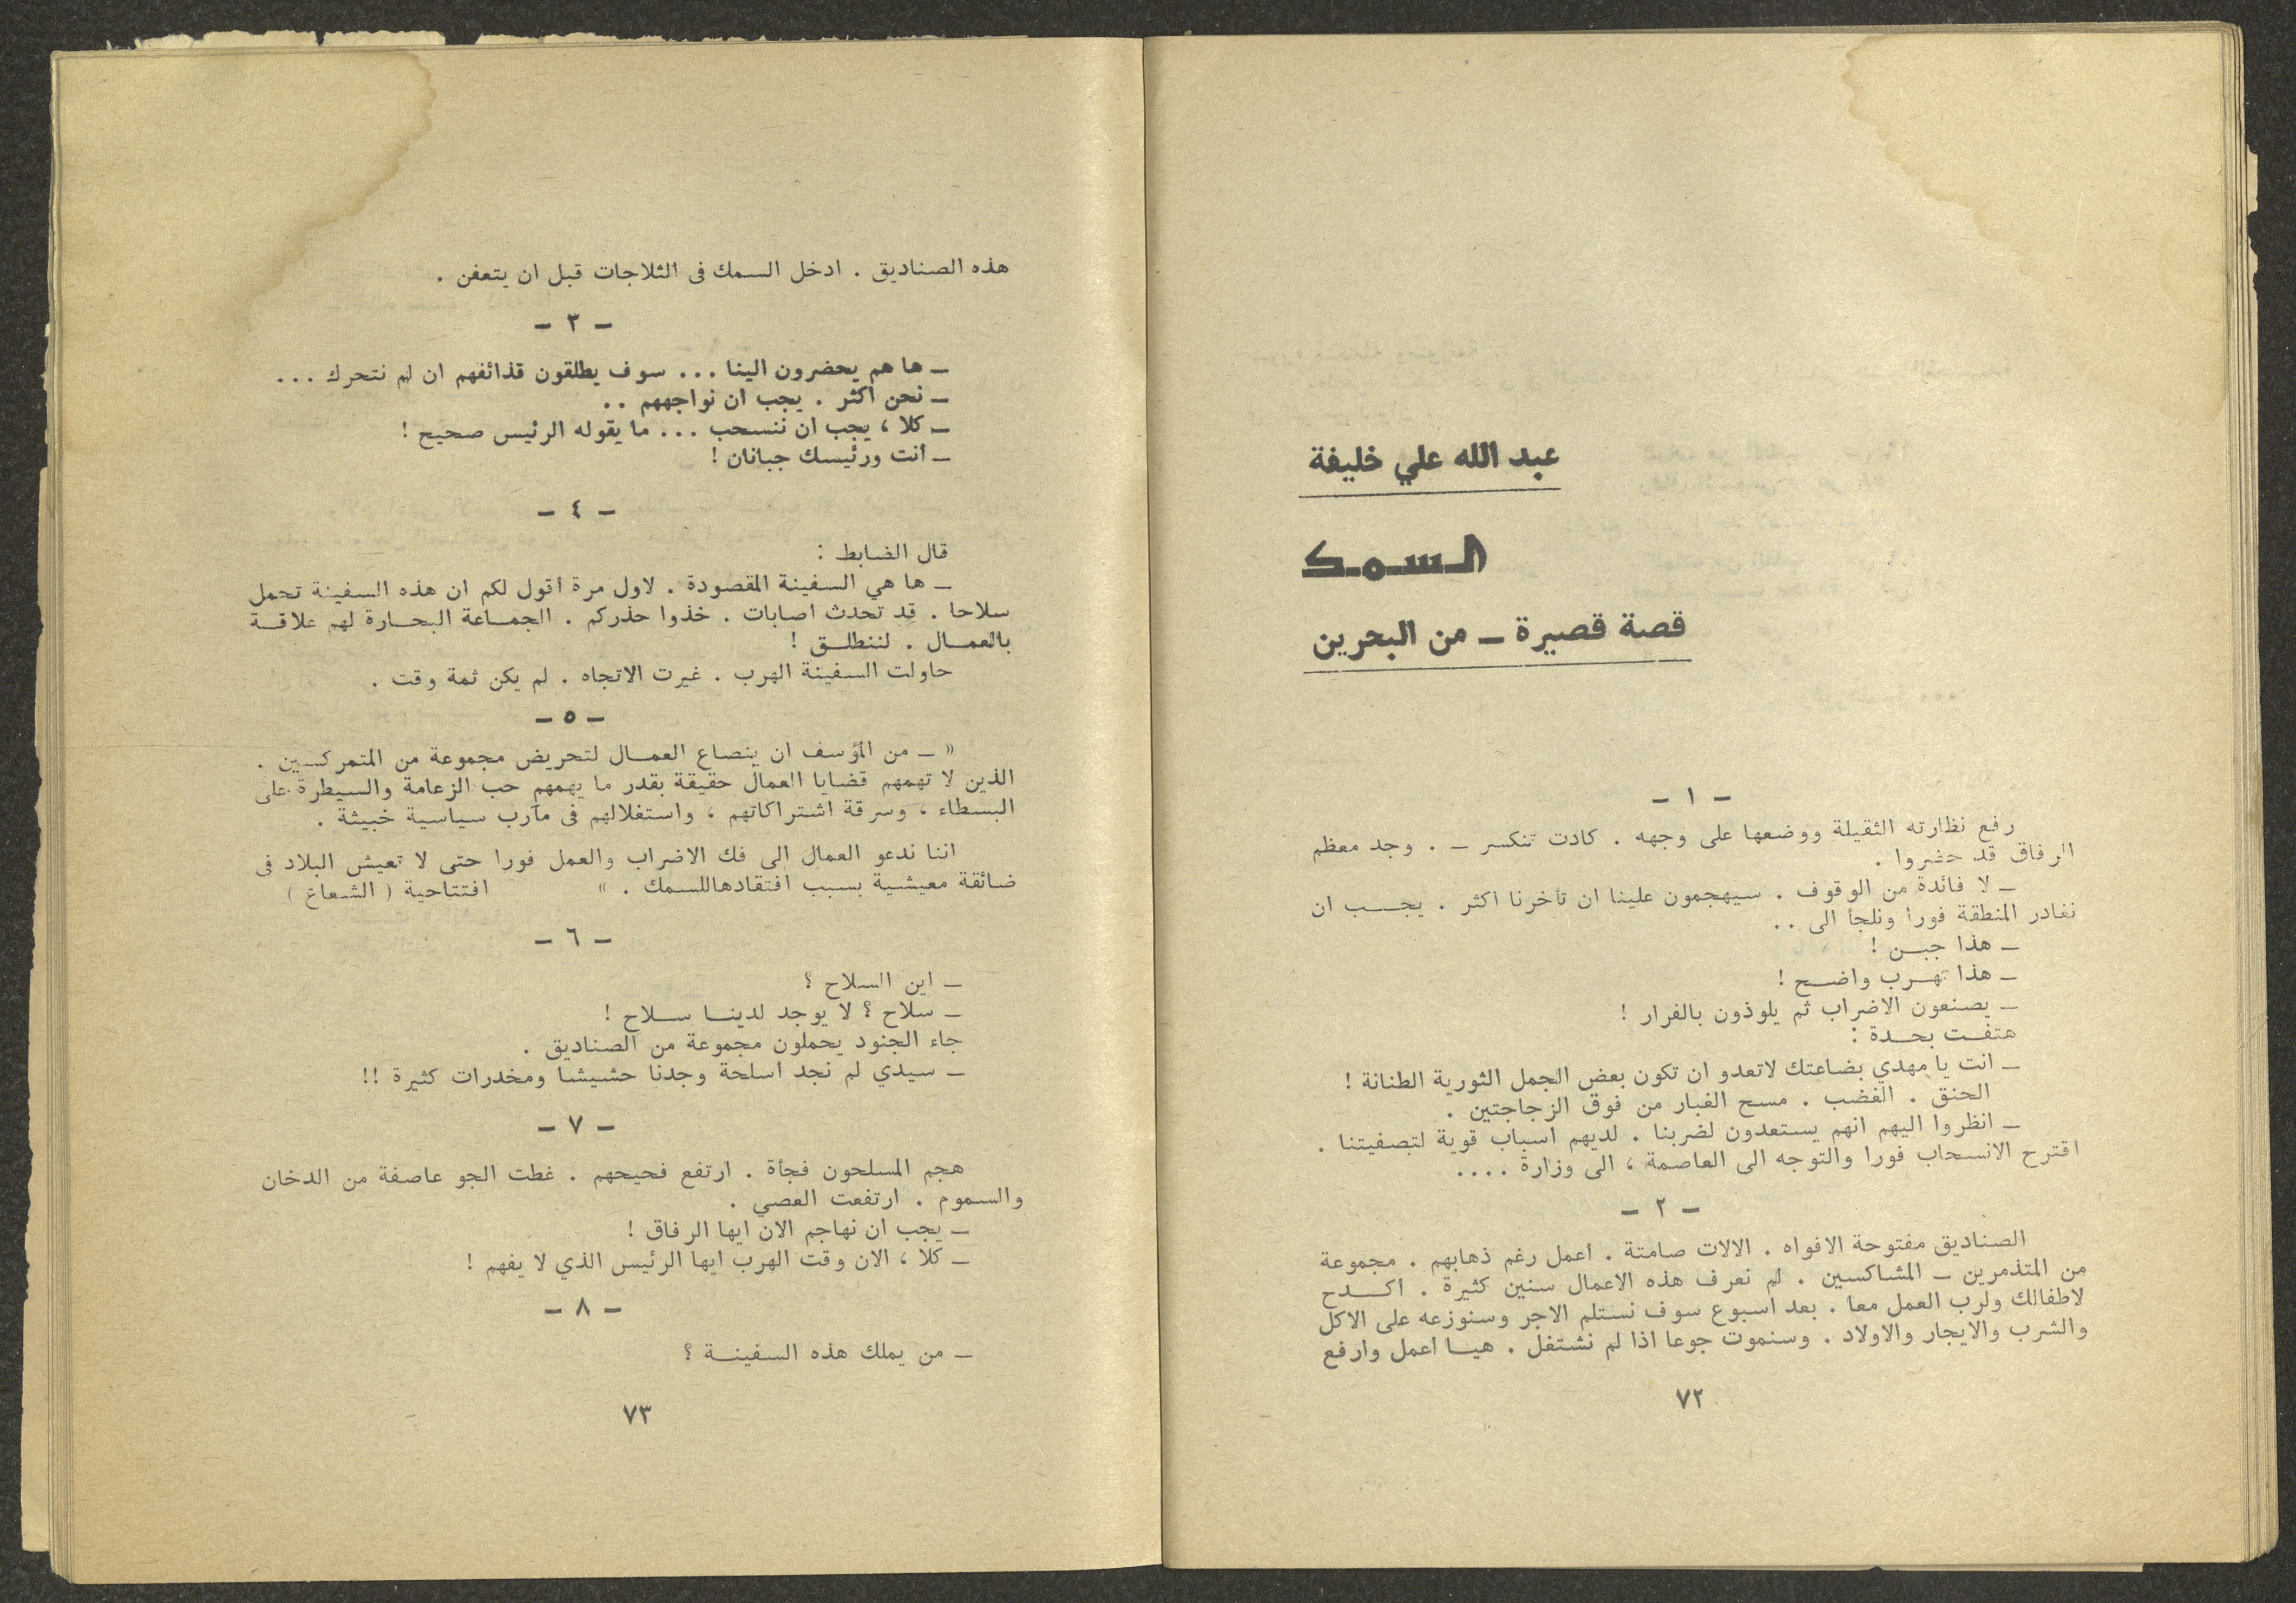 عبد الله علي خليفة
السمك
قصة قصيرة ــ من البحرين
ــ ١ ــ
رفع نظارته الثقيلة ووضعها على وجهه . كادت تنكسر ــ . وجد معظم
الرفاق قد حضروا .
ــ لا فائدة من الوقوف . سيهجمون علينا ان تأخرنا اكثر . يجب ان
نغادر المنطقة فورا ونلجأ الى . .
ــ هذا جبن !
ــ هذا تهرب واضح !
ــ يصنعون الاضراب ثم يلوذون بالفرار !
هتفت بحدة :
ــ انت يا مهدي بضاعتك لاتعدو ان تكون بعض الجمل الثورية الطنانة !
الحنق . الغضب . مسح الغبار من فوق الزجاجتين .
ــ انظروا اليهم انهم يستعدون لضربنا . لديهم اسباب قوية لتصفيتنا .
اقترح الانسحاب فورا والتوجه الى العاصمة ، الى وزارة . . . .
ــ ٢ ــ
الصناديق مفتوحة الافواه . الالات صامتة . أعمل رغم ذهابهم . مجموعة
من المتذمرين ــ المشاكسين . لم نعرف هذه الاعمال سنين كثيرة . اكدح
لاطفالك ولرب العمل معا . بعد اسبوع سوف نستلم الاجر وسنوزعه على الاكل
والشرب والايجار والاولاد . وسنموت جوعا اذا لم نشتغل . هيا أعمل وارفع
٧٢
هذه الصناديق . ادخل السمك فى الثلاجات قبل ان يتعفن .
ــ ٣ ــ
ــ ها هم يحضرون الينا . . . سوف يطلقون قذائفهم ان لم نتحرك . . .
ــ نحن اكثر . يجب ان نواجههم . .
ــ كلا ، يجب ان ننسحب . . . ما يقوله الرئيس صحيح !
ــ أنت ورئيسك جبانان !
ــ ٤ ــ
قال الضابط :
ــ ها هي السفينة المقصودة . لاول مرة أقول لكم ان هذه السفينة تحمل
سلاحا . قد تحدث اصابات . خذوا حذركم . الجماعة البحارة لهم علاقة
بالعمال . لننطلق !
حاولت السفينة الهرب . غيرت الاتجاه . لم يكن ثمة وقت .
ــ ٥ ــ
« ــ من المؤسف ان ينصاع العمال لتحريض مجموعة من المتمركسين .
الذين لا تهمهم قضايا العمال حقيقة بقدر ما يهمهم حب الزعامة والسيطرة على
البسطاء ، وسرقة اشتراكاتهم ، واستغلالهم فى مآرب سياسية خبيثة .
اننا ندعو العمال الى فك الاضراب والعمل فورا حتى لا تعيش البلاد فى
ضائقة معيشية بسبب افتقادهاللسمك . » افتتاحية ( الشعاع )
ــ ٦ ــ
ــ اين السلاح ؟
ــ سلاح ؟ لا يوجد لدينا سلاح !
جاء الجنود يحملون مجموعة من الصناديق .
ــ سيدي لم نجد أسلحة وجدنا حشيشا ومخدرات كثيرة !!
ــ ٧ ــ
هجم المسلحون فجأة . ارتفع فحيحهم . غطت الجو عاصفة من الدخان
والسموم . ارتفعت العصي .
ــ يجب ان نهاجم الان ايها الرفاق !
ــ كلا ، الان وقت الهرب ايها الرئيس الذي لا يفهم !
ــ ٨ ــ
ــ من يملك هذه السفينة ؟
٧٣